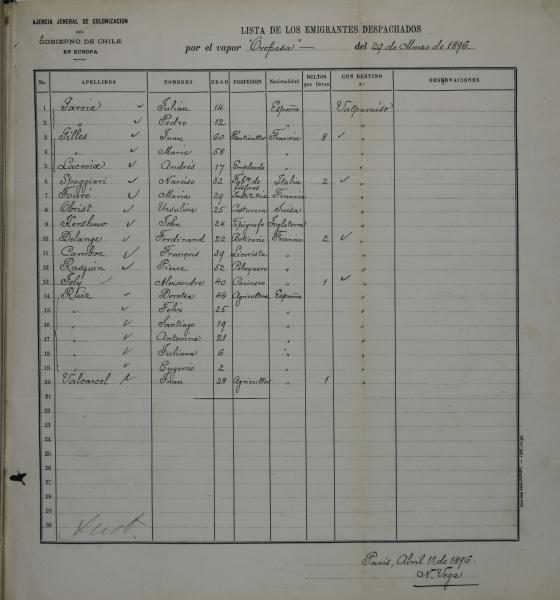 AJENCIA JENERAL DE COLONIZACION
DEL
GOBIERNO DE CHILE
EN EUROPA
LISTA DE LOS EMIGRANTES DESPACHADOS
por el vapor "Oropesa" del 29 de Marzo de 1896.
No. APELLIDOS NOMBRES EDAD PROFESION Nacionalidad BULTOS que llevan CON DESTINO a: OBSERVACIONES
1 Garcia Julian 14 España Valparaiso
2 " Pedro 12 " "
3 Gilles Juan 60 Francia 8 "
4 " Maria 58 " "
5 Lacroix Andrés 17 Empleado " "
6 Spaggiari Narciso 32 Italia 2 "
7 Fouré Maria 29 Institutriz Francia "
8 Obrist Ursuline 25 Costurera Suiza "
9 Kershaw John 24 Tipógrafo Inglaterra "
10 Delange Ferdinand 22 Francia 2 "
11 Cambon François 39 Licorista " "
12 Rasquin Pierre 52 Peluquero " "
13 Joly Alexandre 40 Cocinero " 1 "
14 Ruiz Dorotea 44 Agricultora España "
15 " Felix 25 " "
16 " Santiago 19 " "
17 " Antonina 21 " "
18 " Juliana 6 " "
19 " Eugenio 2 " "
20 Valcarcel Juan 28 Agricultor " 1 "
21
22
23
24
25
26
27
28
29
30
Paris, Abril 1º de 1896.
N. Vega